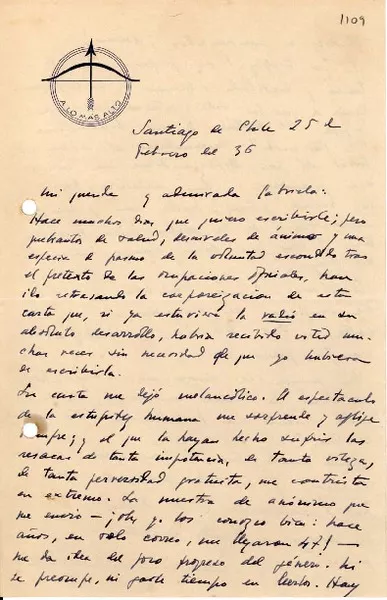 1109
A LO MAS ALTO
Santiago de Chile 25 d
Febrero de 36
Mi grande y admirada Gabriela:
Hace muchos días que quiero escribirle; pero
quebrantos de salud, desniveles de ánimo y una
especie de pasmo de la voluntad escondido tras
el pretexto de las ocupaciones oficiales, han
ido retrasando la corporización de esta
carta que, si ya estuviera la radio en su
absoluto desarrollo, habría recibido usted mu-
chas veces sin necesidad de que yo hubiera
de escribirla.
Su carta me dejó melancólico. El espectáculo
de la estupidez humana me sorprende y aflige
siempre; y el que la hayan hecho sufrir las
resacas de tanta impotencia, de tanta vileza,
de tanta perversidad gratuita, me contrista
en extremo. La muestra de anónimo que
me envió — ¡oh, yo los conozco bien: hace
años, en solo correo, me llegaron 47! —
me da idea del poco progreso del género. Ni
se preocupe, ni gaste tiempo en leerlos. Hay